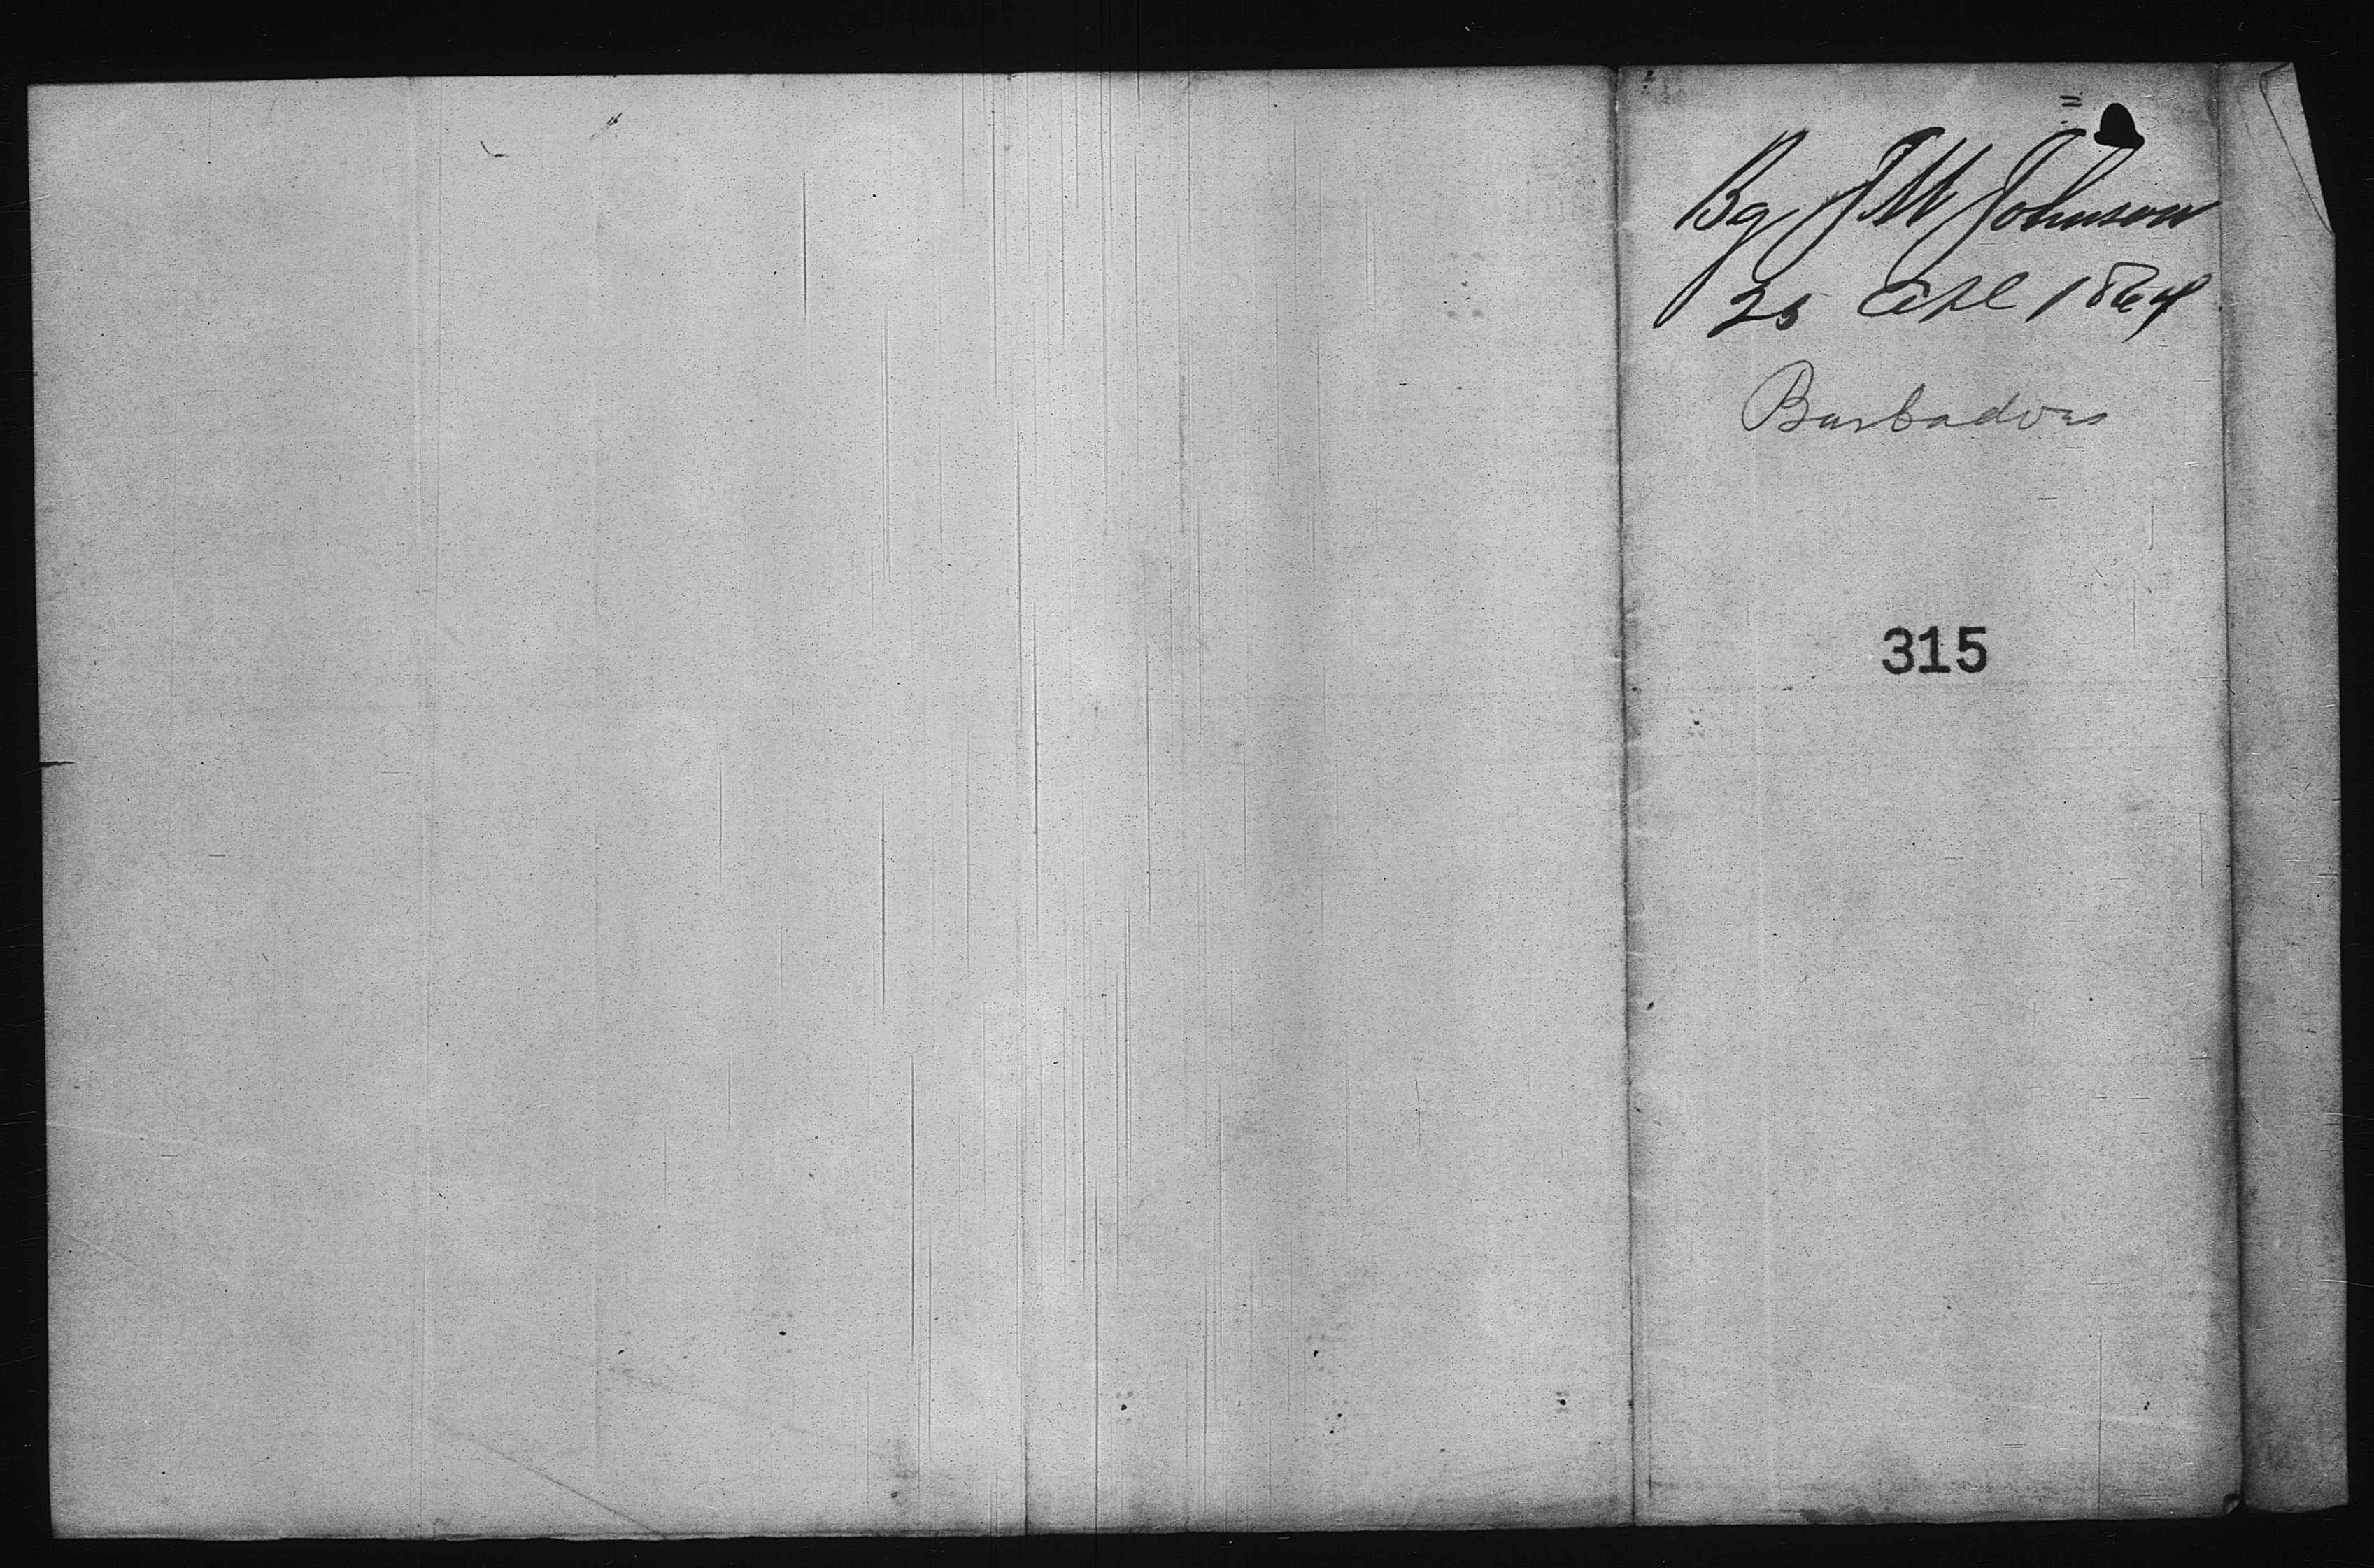 Bg J M Johnson
25 Apl 1864
Barbadoes
315